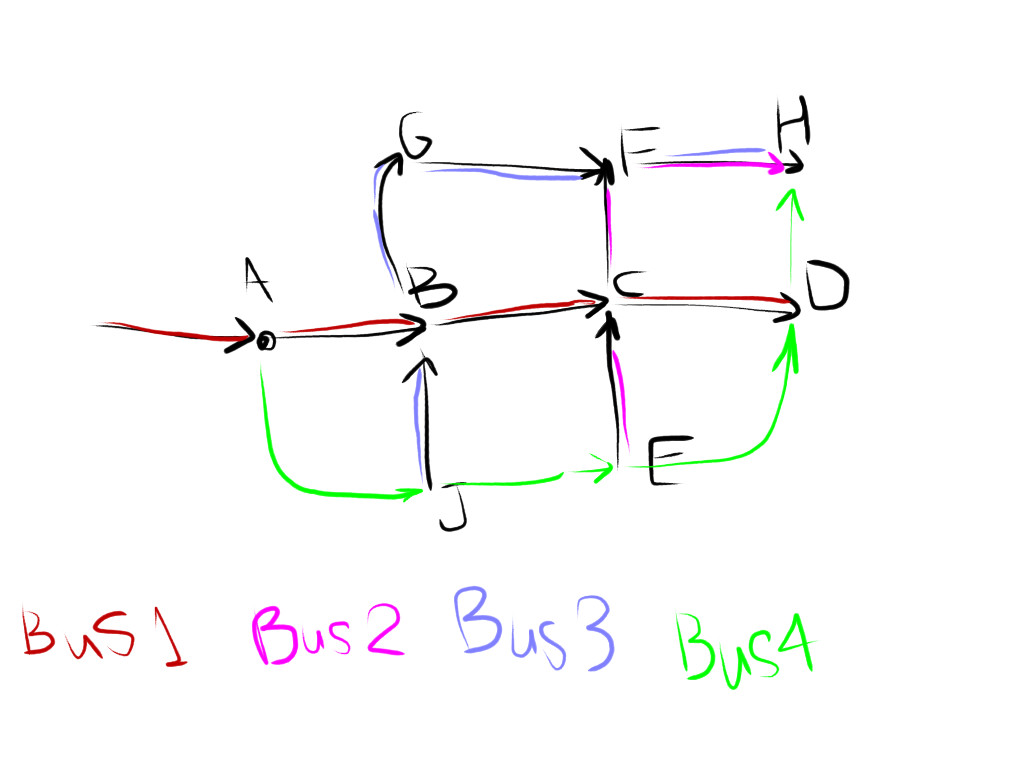 G F H
A B C D
J E
BUS 1 Bus 2 Bus 3 Bus 4